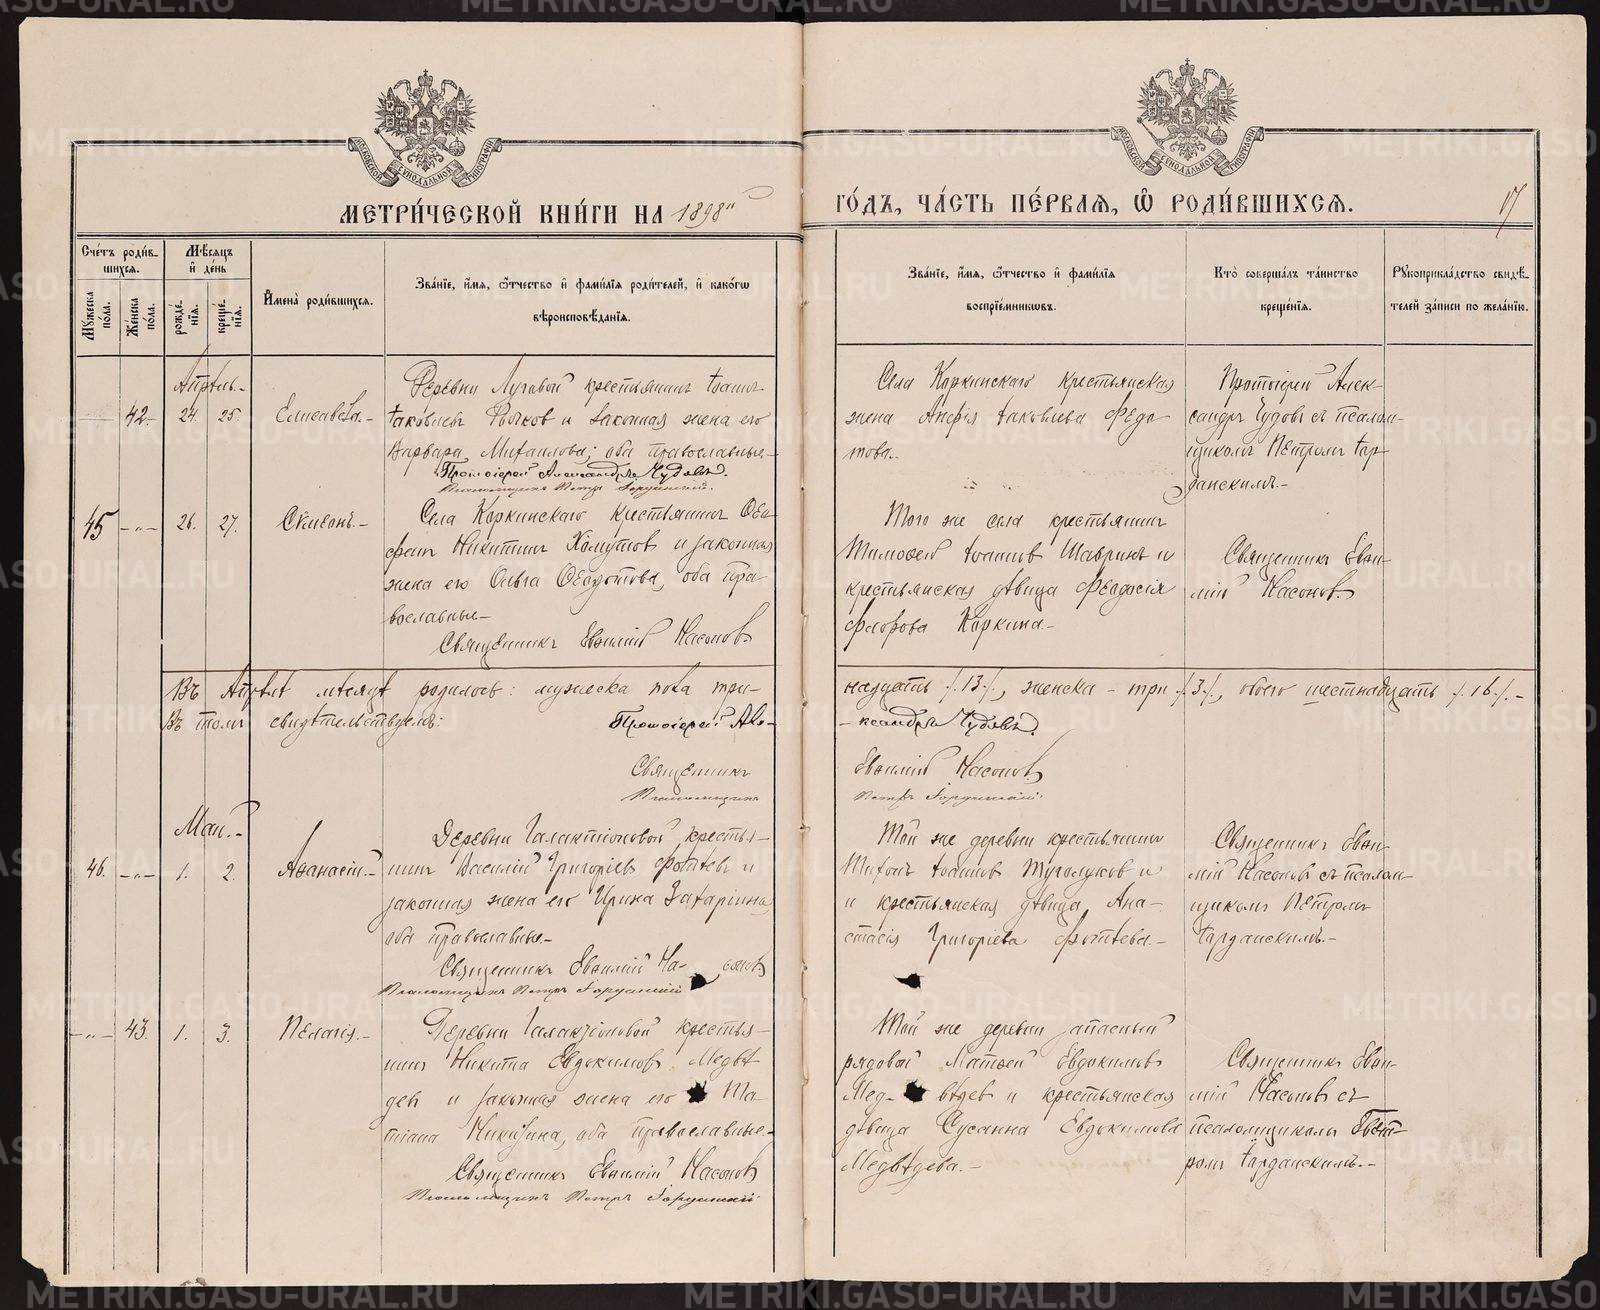 МЕТРИ́ЧЕСКОЙ КНИ́ГИ НА 1898"
ГО́ДЪ, ЧА́СТЬ ПЕ́РВАЯ, Ѽ РОДИ́ВШИХСЯ.
17
Сче́тъ роди́вшихся.
Мꙋ́жеска по́ла.
Же́нска по́ла.
Мѣ́сяцъ и҆ де́нь
рожде́нїя.
креще́нїя.
И҆мена̀ роди́вшихся.
Зва́нїе, и҆́мя, ѻ҆́тчество и҆ фами́лїя роди́телей, и҆ како́гѡ
вѣроисповѣ́данїя.
Зва́нїе, и҆́мя, ѻ҆́тчество и҆ фами́лїя
воспрїе́мникѡвъ.
Кто̀ соверша́лъ та́инство
креще́нїя.
Рꙋкоприкла́дство свидѣ́-
телей за́писи по жела́нїю.
Апрѣль.-
42.- 24. 25. Елисавета.-
Деревни Луговой крестьянинъ Іоаннъ
Іаковлевъ и законная жена его
Варвара Михаилова; оба православные.-
Протоіерей Александръ Чудовъ.
Псаломщикъ Петръ
Села Коркинскаго крестьянская
жена Анфія Іаковлева Федо-
това.
Протоіерей Алек-
сандръ Чудовъ съ псалом-
щикомъ Петромъ
45 -"- 26. 27. Сѵмеонъ.-
Села Коркинскаго крестьянинъ
Никитинъ Хомутовъ и законная
жена его Ольга Ѳедотова, оба пра-
вославные-
Священникъ Евѳимій Насоновъ
Того же села крестьянинъ
Тимоѳей Іоанновъ Шавринъ и
крестьянская дѣвица Ѳеодосія
Флорова Коркина-
Священникъ Евѳи-
мій Насоновъ.
Въ Апрѣлѣ мѣсяцѣ родилось: мужеска пола три-
надцать /.13./, женска - три /.3./, обоего шестнадцать /.16./.-
Въ томъ свидѣтельствуемъ: Протоіерей Але-
ксандръ Чудовъ.
Священникъ Евѳимій Насоновъ
Псаломщикъ Петръ
Май.-
46. -"- 1. 2. Аѳанасій.-
Деревни Галактіоновой крестья-
нинъ Василій Григоріевъ Фотѣевъ и
законная жена его Ирина Захаріина
оба православные.-
Священникъ Евѳимій На- соновъ
Псаломщикъ Петръ
Той же деревни крестьянинъ
Тихонъ Іоанновъ Туголуковъ и
и крестьянская дѣвица Ана-
стасія Григоріева Фотѣева.-
Священникъ Евѳи-
мій Насоновъ съ псалом-
щикомъ Петромъ
-"- 43. 1. 3. Пелагія.-
Деревни Галактіоновой крестья-
нинъ Никита Евдокимовъ Медвѣ-
девъ и законная жена его Та-
тіана оба православные.-
Священникъ Евѳимій Насоновъ
Псаломщикъ Петръ
Той же деревни запасный
рядовой Матѳей Евдокимовъ
Мед- вѣдевъ и крестьянская
дѣвица Сусанна Евдокимова
Медвѣдева.-
Священникъ Евѳи-
мій Насоновъ съ
псаломщикомъ Пет-
ромъ